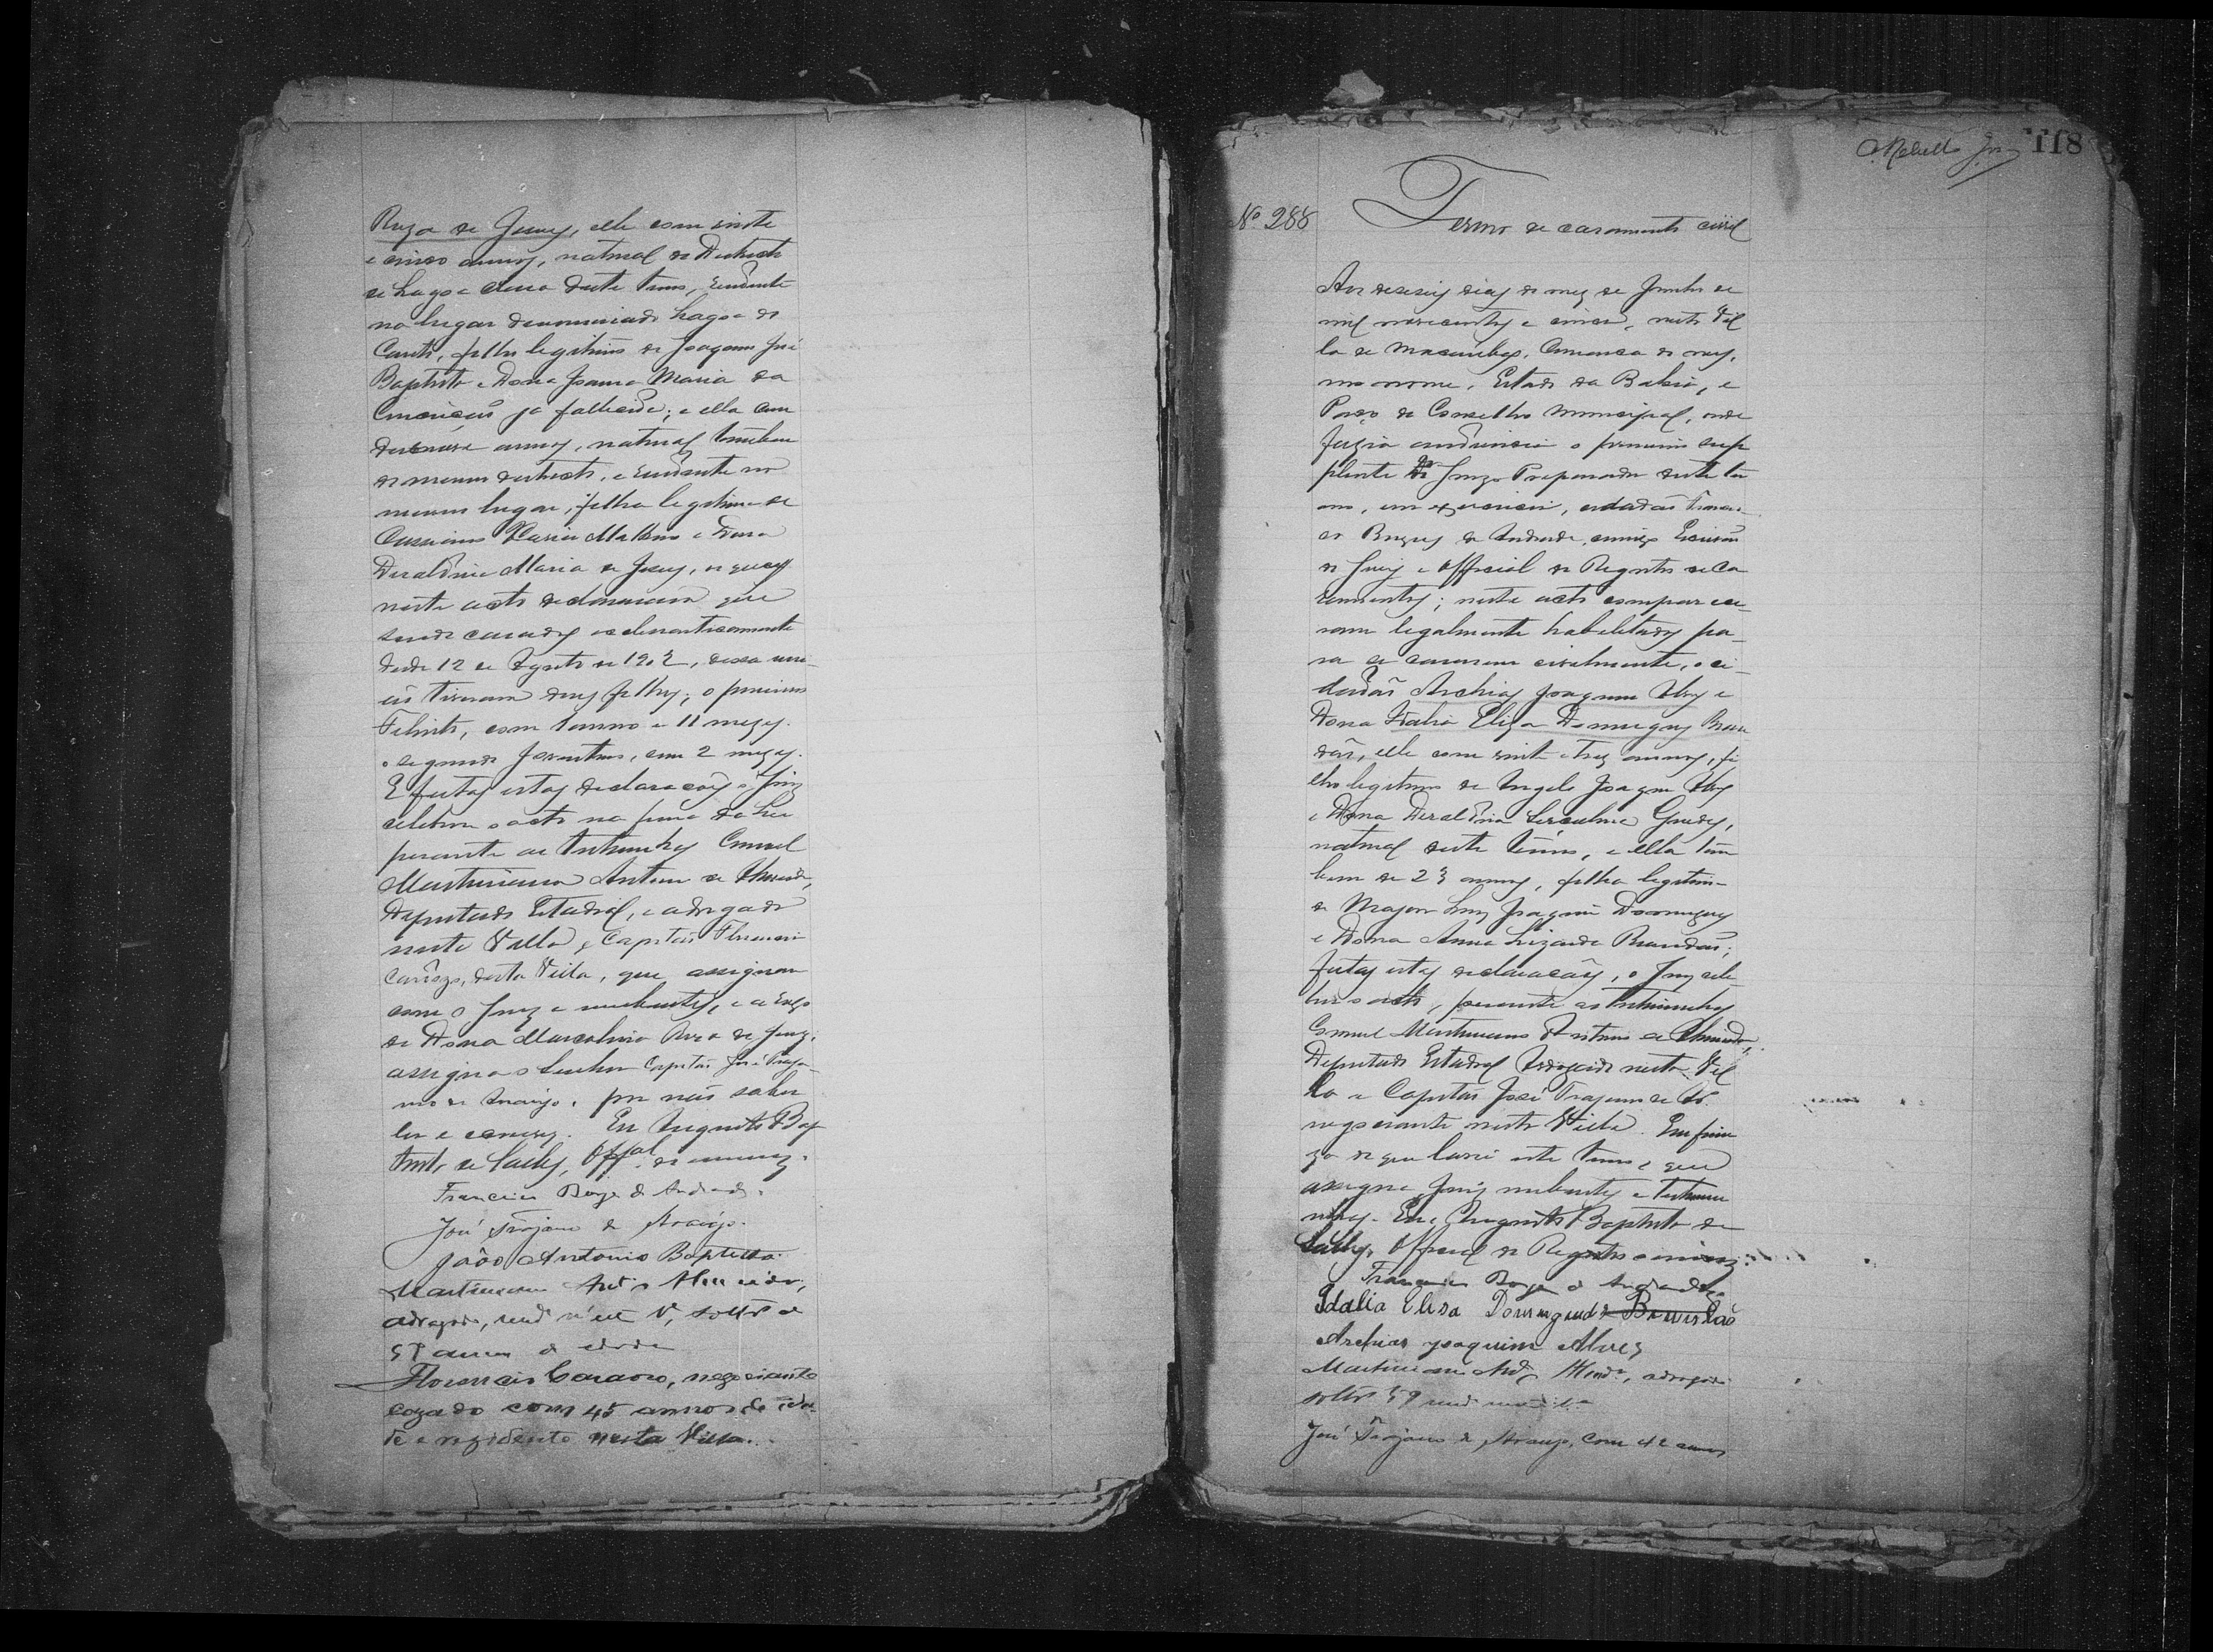 Roza de Jesus, elle com vinte
e cinco annos, natural do Districto
de Lagoa Clara deste termo, residente
no lugar denominado Lagoa do
filho legitimo de Joaquim José
Baptista e Dona Joanna Maria da
Conceição já fallecida; e ella com
dezenove annos, natural tambem
do mesmo districto, e residente no
mesmo lugar, filha legitima de
Cassiano e Dona
Deraldina Maria de Jesus, os quaes
neste acto declararam que
sendo casados ecclesiasticamente
desde 12 de Agosto de 1902, dessa uni-
ão tiveram dous filhos; o primeiro
Filinto, com 1 anno e 11 mezes.
o segundo Joventino, com 2 mezes.
E feitas estas declarações o Juiz
celebrou o acto na forma da Lei
perante as testemunhas Coronel
Martiniano Antonio de Almeida,
Deputado Estadoal, e advogado
nesta Villa, e Capitão Florencio
Cardozo, desta Villa, que assignam
com o Juiz e nubentes, e a rogo
de Dona Marcolina Roza de Jesus,
assigna o Senhor Capitão José Traja-
no de Araujo, por não saber
ler e escrever. Eu Augusto Bap
tista de Salles, Offal. o escrevi.
Francisco Borges de Andrade.
José Trajano de Araujo.
João Antonio Baptista
Martiniano Anto Almeida,
advogado, resid n'esta Va, soltro de
annos de edade
Florencio Cardozo, negociante
cazado com 45 annos de ida-
de e rezidente nesta Villa.
O. Rebello Jor 118
No 288
Termo de casamento civil
Aos deseseis dias do mez de Junho de
mil novecentos e cinco, nesta Vil
la de Macaúbas, Comarca do mes,
mo nome, Estado da Bahia, e
Paço do Conselho Municipal, onde
fazia audiencia o primeiro sup
plente do Juizo Preparador deste ter
mo, em exercicio, cidadão Francis-
co Borges de Andrade, comigo Escrivão
de Juiz e Official do Registro de Ca
samentos; neste acto comparece-
ram legalmente habilitados pa-
ra se casarem civilmente, o ci-
dadão Archias Joaquim Alves e
Dona Idalia Eliza Domingues Bran
dão, elle com vinte e trez annos, fi
lho legitimo de Angelo Joaquim Alves
e Dona Deraldina Guedes,
natural deste termo, e ella tam
bem de 23 annos, filha legitima
do Major Luiz Joaquim Domingues
e Dona Anna Brandão;
feitas estas declarações, o Juiz cele
brou o acto, perante as testemunhas
Coronel Martiniano Antonio de Almeida,
Deputado Estadoal Advogado nesta Vil
la e Capitão José Trajano de Ar.
negociante nesta Villa. Em firme
za do que lavrei este termo, que
assigna o Juiz nubentes e testemu
nhas. Eu, Augusto Baptista de
Salles, Official do Registro o escrevi.
Francisco Borges de Andrade.
Idalia Elisa Domingues Brandão
Archias Joaquim Alves
Martiniano Anto Almda, advogado
soltro 59
José Trajano de Araujo, com 42 annos